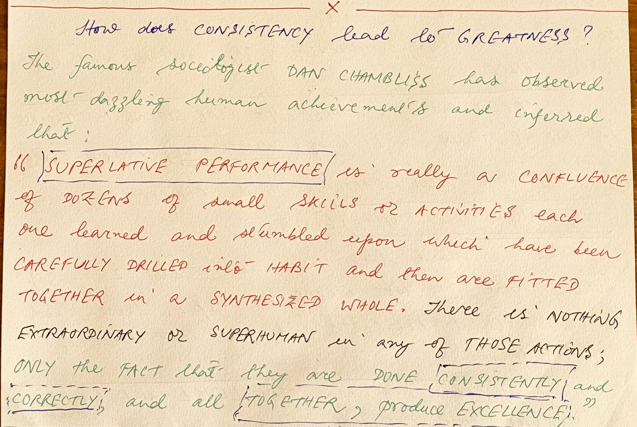 x
How does CONSISTENCY lead to GREATNESS?
The famous sociologist DAN CHAMBLISS has observed
most dazzling human achievements and inferred
that:
"SUPERLATIVE PERFORMANCE is really a CONFLUENCE
of DOZENS of small SKILLS or ACTIVITIES each
one learned and stumbled upon which have been
CAREFULLY DRILLED into HABIT and then are FITTED
TOGETHER in a SYNTHESIZED WHOLE. There is NOTHING
EXTRAORDINARY or SUPERHUMAN in any of THOSE ACTIONS;
ONLY the FACT that they are DONE CONSISTENTLY and
CORRECTLY, and all TOGETHER, produce EXCELLENCE."